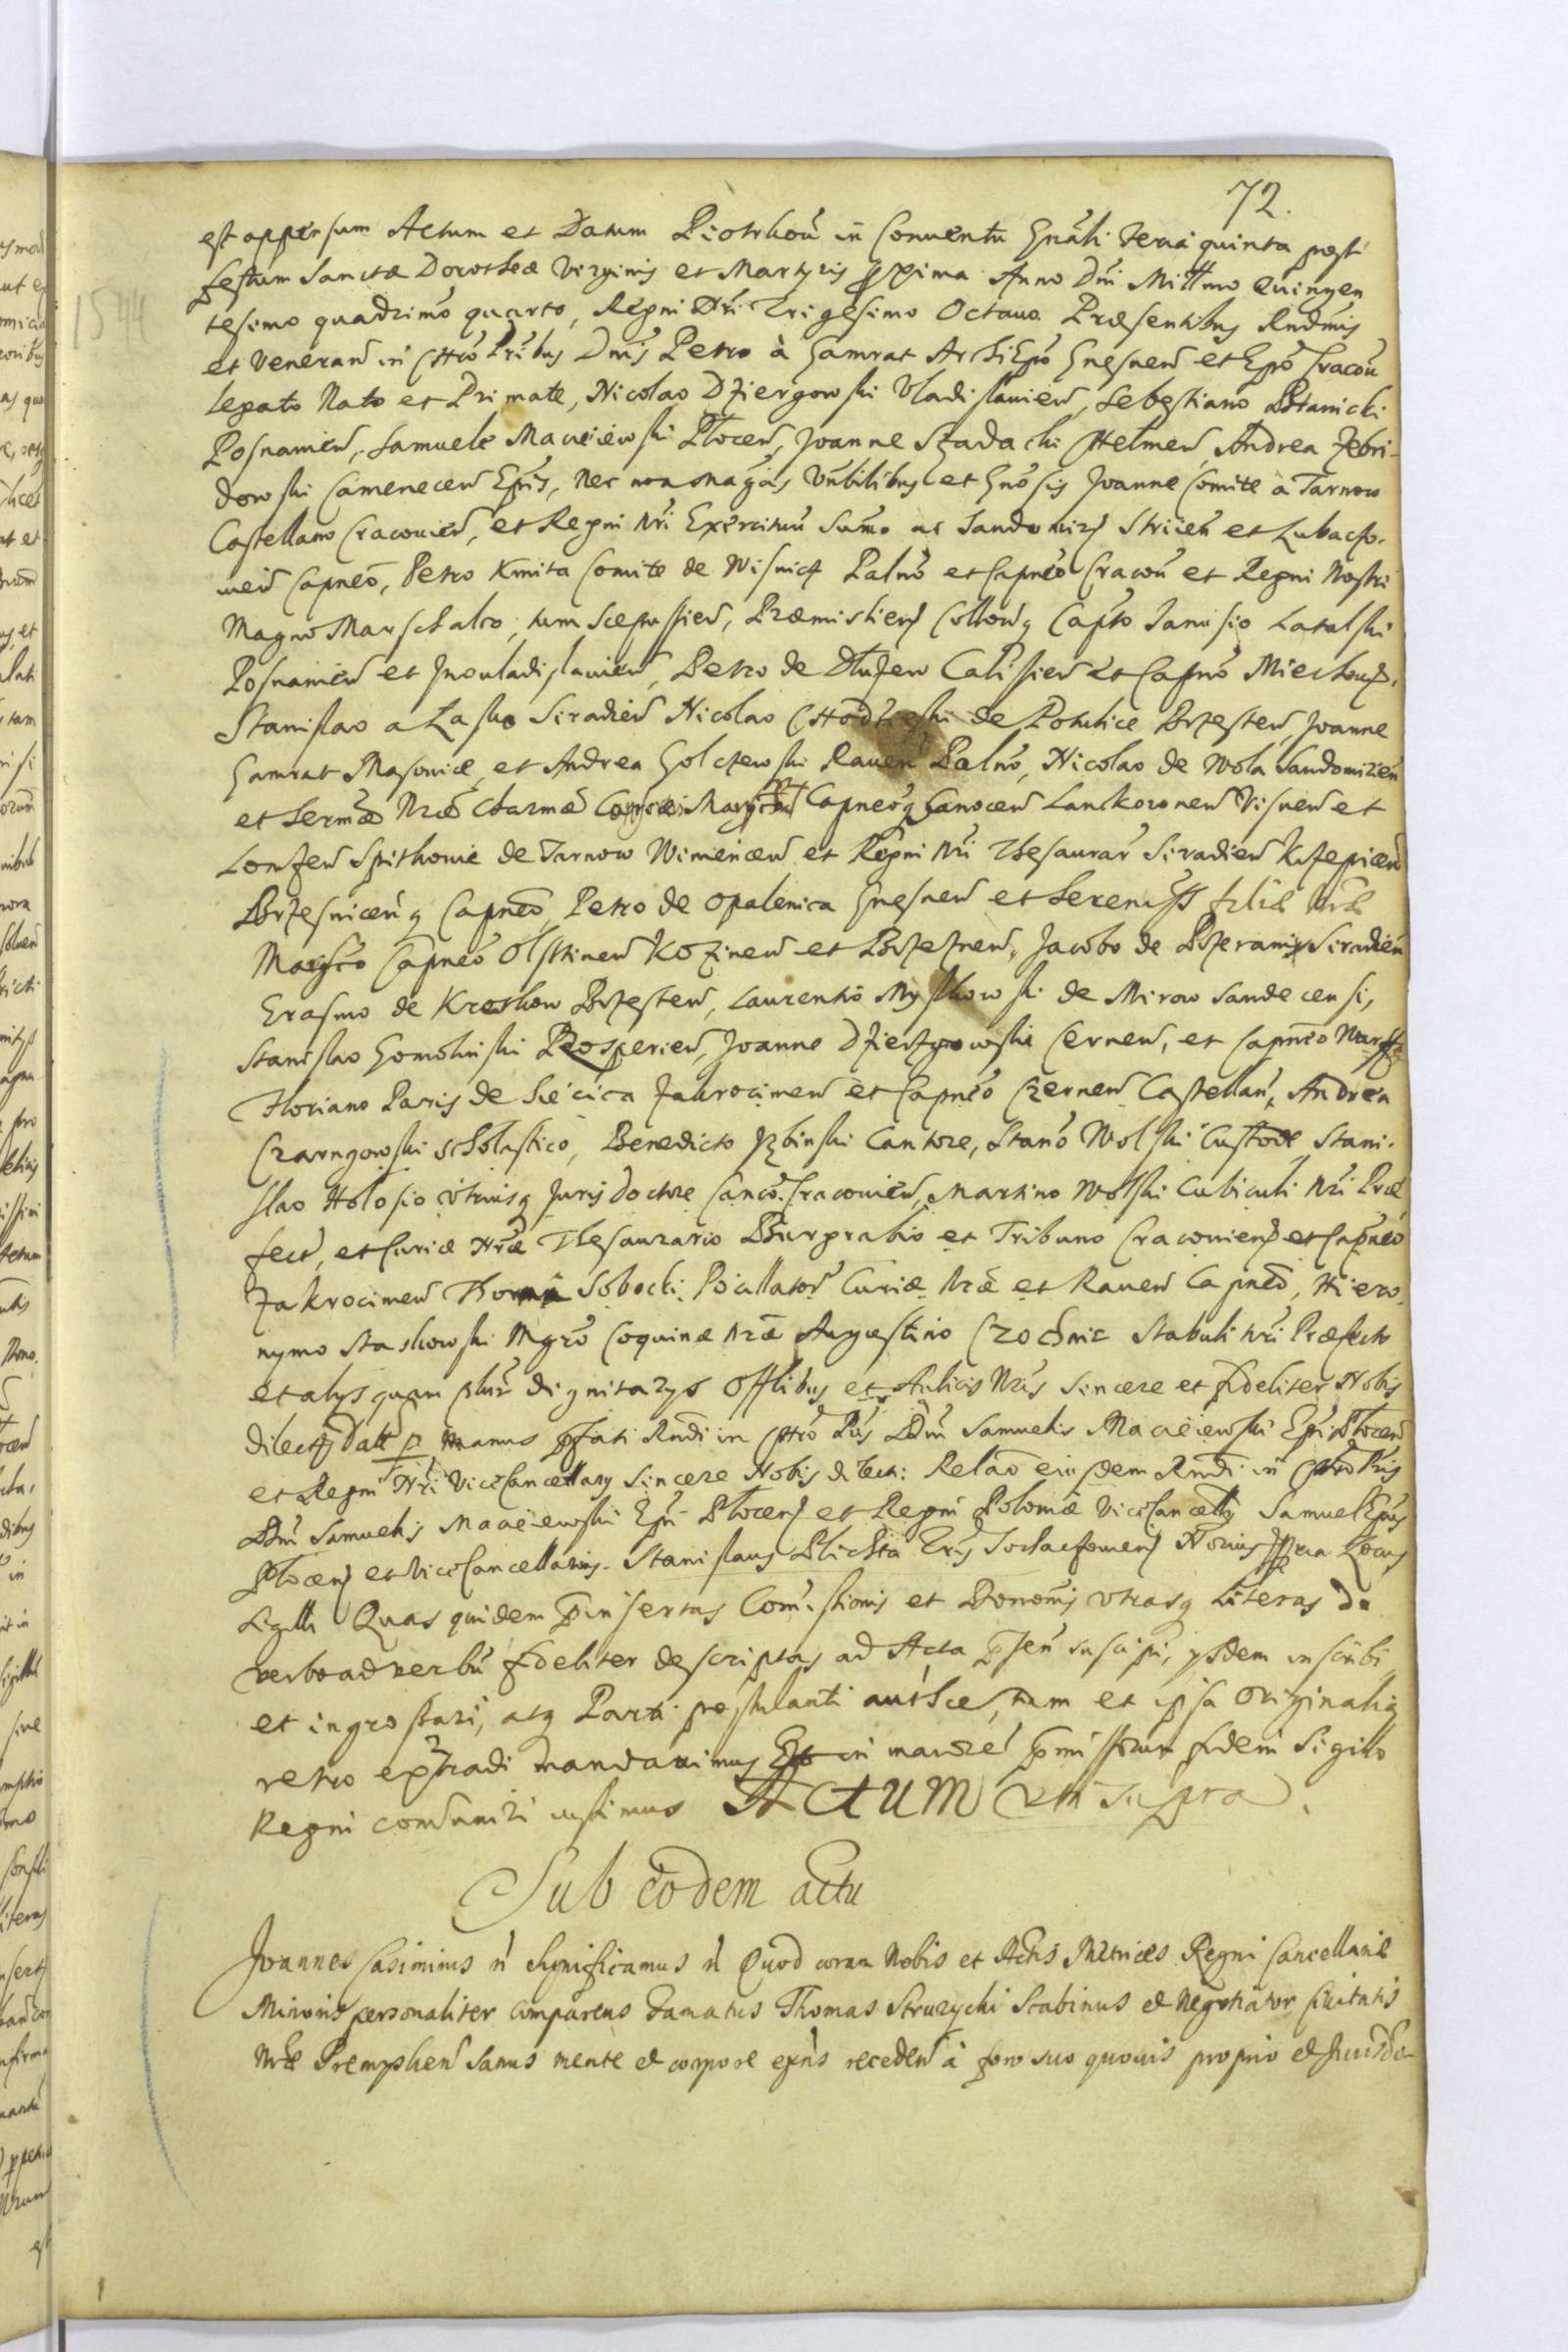 72.
1544
est appensum Actum et Datum Piotrkoviæ in Conventu Gnāli Feria quinta post
festum Sanctæ Dorotheæ Virginis et Martyris proxima Anno Dni Millmo Quingen
tesimo quadrimo quarto, Regni Nri Trigesimo Octauo. Præsentibus Rndmis
et Veneran in Chro Pribus Dnis Petro à Gamrat ArchiEpo Gnesnen et Epo Cracou
legato Nato et Primate, Nicolao Dziergowski Vladislauien, Sebestiano Branicki
Posnanien, Samuele Macieiowski Plocen, Joanne Szadachi Chelmen, Andrea Zebri-
dowski Camenecen Epis, Nec non magcis Vnbilibus et Gnosis Joanne Comite à Tarnow
Castellano Cracouien, et Regni Nri Exercituu Sumo ac Sandomirz Striien et Lubaczo-
uien Capneo, Petro Kmita Comite de Wisnicz Palno et Capneo Cracou et Regni Nostri
Magno Marschalco, tum Scepussien, Præmislien Collouq Capto Janusio Latalski
Posnanien et Jnouladislauien, Petro de Dluzew Calissien et Capno Miechouz.
Stanislao a Lasko Siradien Nicolao Chodzieski de Potulice Brzesten, Joanne
Gamrat Masouiæ, et Andrea Golczewski Rauen Palno, Nicolao de Wola Sandomirien
et Sermæ Nræ Charmæ Capneoq Sanocen Lanckoronen Visnen et
Lonzen Spithonie de Tarnow Winnicen et Regni Nri Thesaurar Siradien Krzepicen
Brzesnicenq Capneo Petro de Opalenica Gnesnen et Sereniss filiæ Nræ
Magro Capneo Olsthinen Kozinen et Brzeznen, Jacobo de Wzeramis Siradien
Erasmo de Kreskow Brzesten, Laurentio Myszkowski de Mirow Sandecensi,
Stanislao Gomolinski Rosperien, Joanne Dzierzgowski Cernen, et Capneo Warss
Floriano Paris de Siecica Zakrocimen et Capneo Czernen Castellan, Andrea
Czarngowski Scholastico, Benedicto Jzbinski Cantore, Stano Wolski Custode, Stani-
slao Hosio vtriusq Juris doctore Canco. Cracouien, Martino Wolski Cubiculi Nri Præ
fect, et Curiæ Nræ Thesaurario Burgrabio et Tribuno Cracouienz et Capneo
Zakrocimen Thoma Sobocki Pocillator Curiæ Nræ et Rauen Capneo, Hiero-
nymo Staskowski Mgro Coquinæ Nræ Augustino Czochnic Stabuli Nri Præfecto
et alys quam plur dignitarys Offlibus et Aulicis Nris Sincere et fideliter Nobis
dilectis Datt p manus pfati Rndi in Chro Pris Dni Samuelis Macieiowski Epi Plocen
et Regni Nri ViceCancellary Sincere Nobis dilecti: Relao eiusdem Rndi in Chro Pris
Dni Samuelis Macieiowski Epi Plocenz et Regni Poloniæ ViceCancelly Samuel Epus
Plocenz et ViceCancellarius. Stanislaus Plichta Eris Sochaczouienz Nrius sspr Locus
Sigilli Quas quidem p insertas Comissionis et Donaonis vtrasq Literas de
verbo ad verbu fideliter descriptas ad Acta psen suscipi, ysdem inscribi
et ingrossari, atq Parti postulanti authce, tum et ipsa Originalia
retro extradi mandauimus Et in maiore pmissorum fidem Sigillo
Regni comunniri iussimus ACTUM Vti Supra.
Sub eodem actu
Joannes Casimirus n Significamus n Quod coram Nobis et Actis Metrices Regni Cancellariæ
Minoris personaliter comparens Famatus Thomas Struzycki Scabinus et Negotiator Ciuitatis
Nræ Premyslien Sanus mente et corpore exns receden à foro suo quouis proprio et Jurisdo-